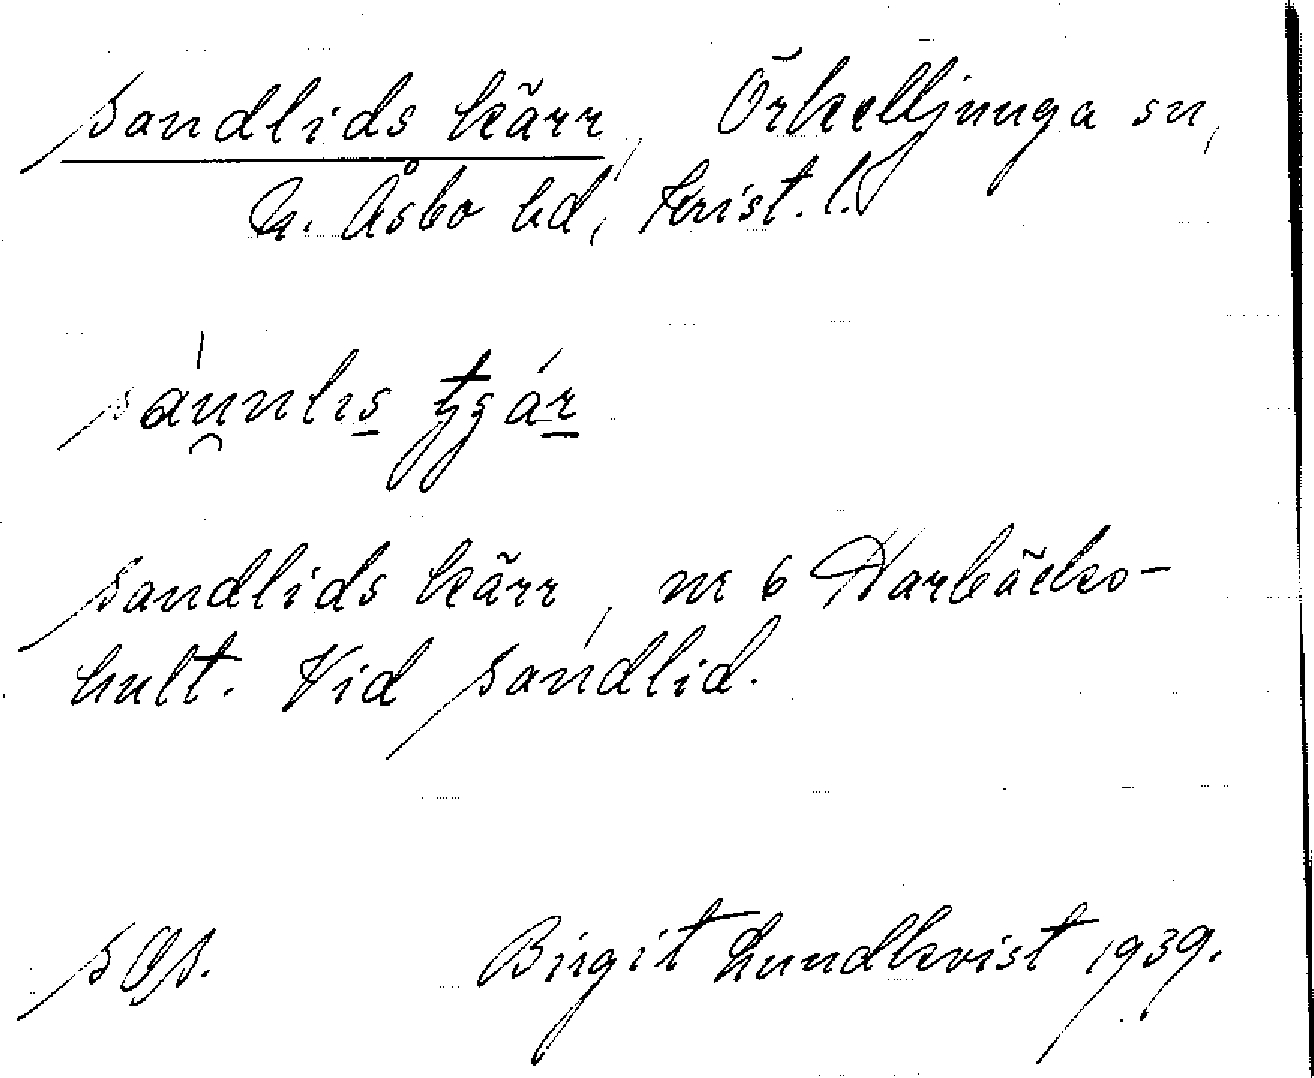 Sandlids kärr, Örkelljunga sn,
N. Åsbo hd, Krist. l.
Sandlids kärr, nr 6 Harbäcks-
hult. Vid Sandlid.
Birgit Lundkvist 1939.